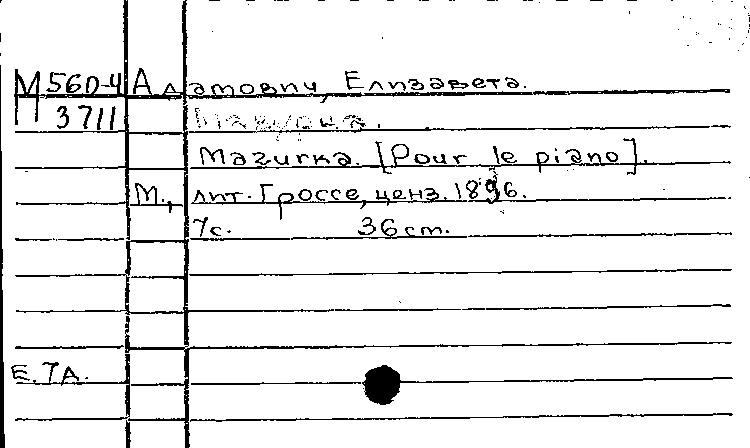 М 560-4 Адамович, Елизавета.
П 3711
Мазурка. [Pour le piano].
М., лит. Гроссе, ценз. 1896.
7с. 36 cm.
Е. 7А.